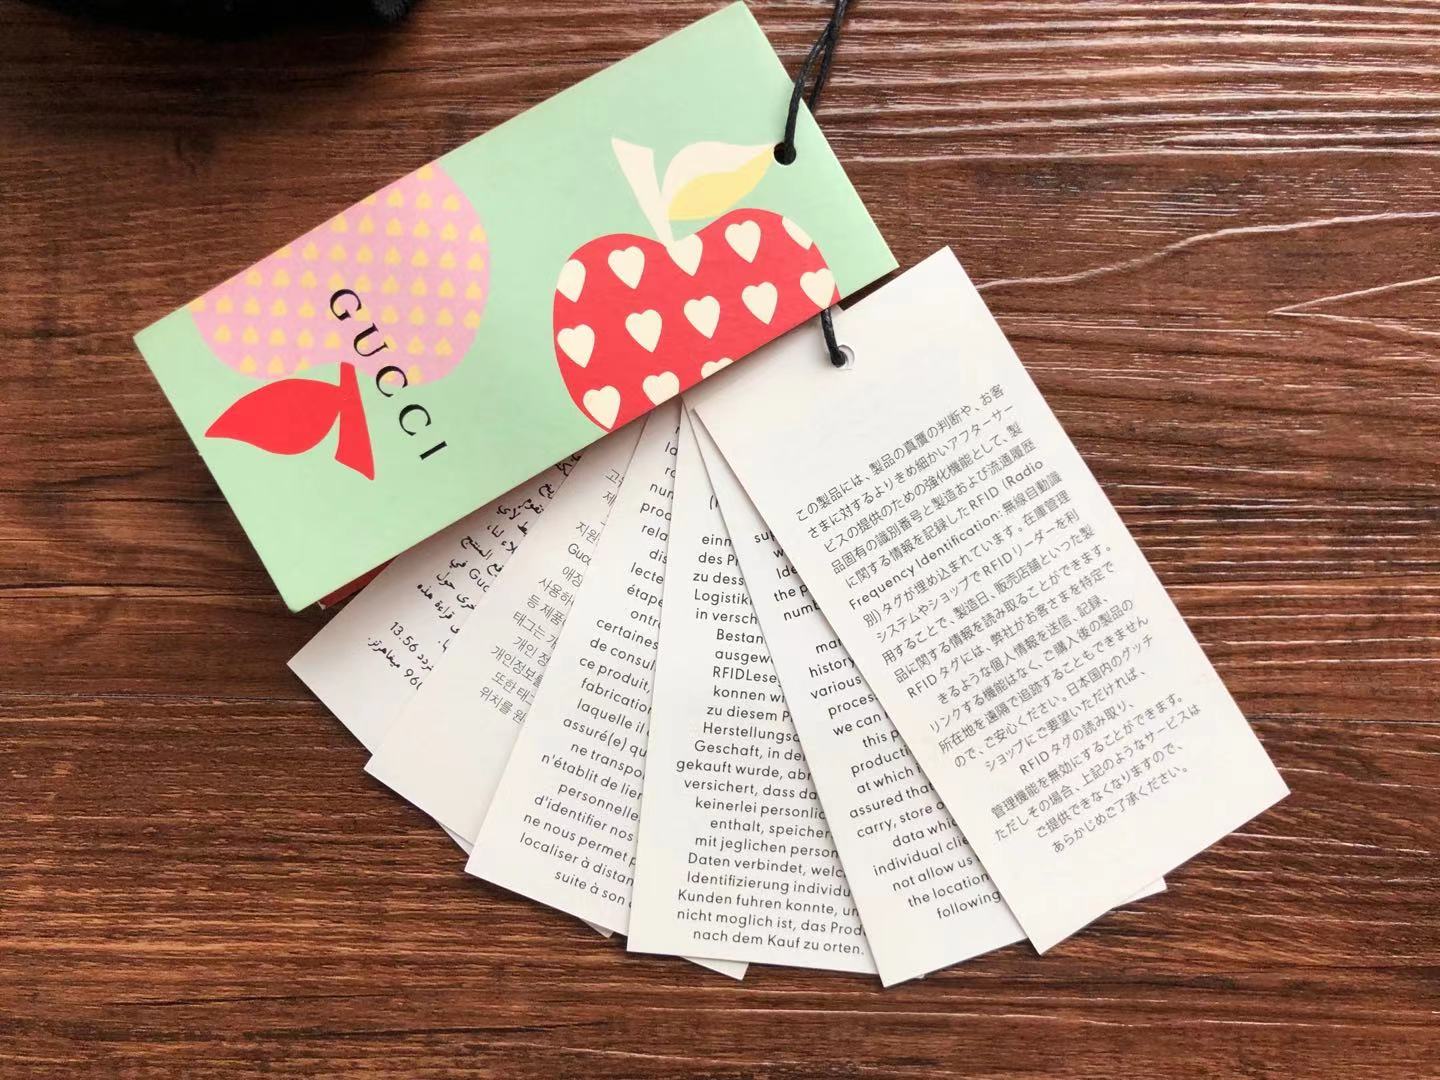 GUCCI
この製品には、製品の真贋の判断や、お客
さまに対するよりきめ細かいアフターサー
ビスの提供のための強化機能として、製
品固有の識別番号と製造および流通履歴
に関する情報を記録したRFID（Radio
Frequency Identification：無線自動識
別）タグが埋め込まれています。在庫管理
システムやショップでRFIDリーダーを利
用することで、製造日、販売店舗といった製
品に関する情報を読み取ることができます。
RFIDタグには、弊社がお客さまを特定で
きるような個人情報を送信、記録、
リンクする機能はなく、ご購入後の製品の
所在地を遠隔で追跡することもできません
ので、ご安心ください。日本国内のグッチ
ショップにご要望いただければ、
RFIDタグの読み取り、
管理機能を無効にすることができます。
ただしその場合、上記のようなサービスは
ご提供できなくなりますので、
あらかじめご了承ください。
the p
numb
history
various
process
we can
this p
producti
at which
assured that
carry, store o
data whic
individual clie
not allow us
the location
following
einn
des P
zu dess
Logistik
in versch
Bestan
ausgew
RFIDLese
konnen wi
zu diesem P
Herstellungsd
Geschaft, in de
gekauft wurde, abr
versichert, dass da
keinerlei personlic
enthalt, speicher
mit jeglichen person
Daten verbindet, welc
Identifizierung individu
Kunden fuhren konnte, un
nicht moglich ist, das Prod
nach dem Kauf zu orten.
num
prod
rela
dis
lecte
étape
ontr
certaines
de consul
ce produit,
fabrication
laquelle il
assuré(e) qu
ne transpo
n'établit de lier
personnelle
d'identifier nos
ne nous permet p
localiser à distan
suite à son
고
제
지원
Gucc
애장
사용하
등 제품
태그는 개
개인 정
개인정보를
또한 태그
위치를 원
المنتج
Guc في
قراءة هذه
13.56
ميغاهرتز.